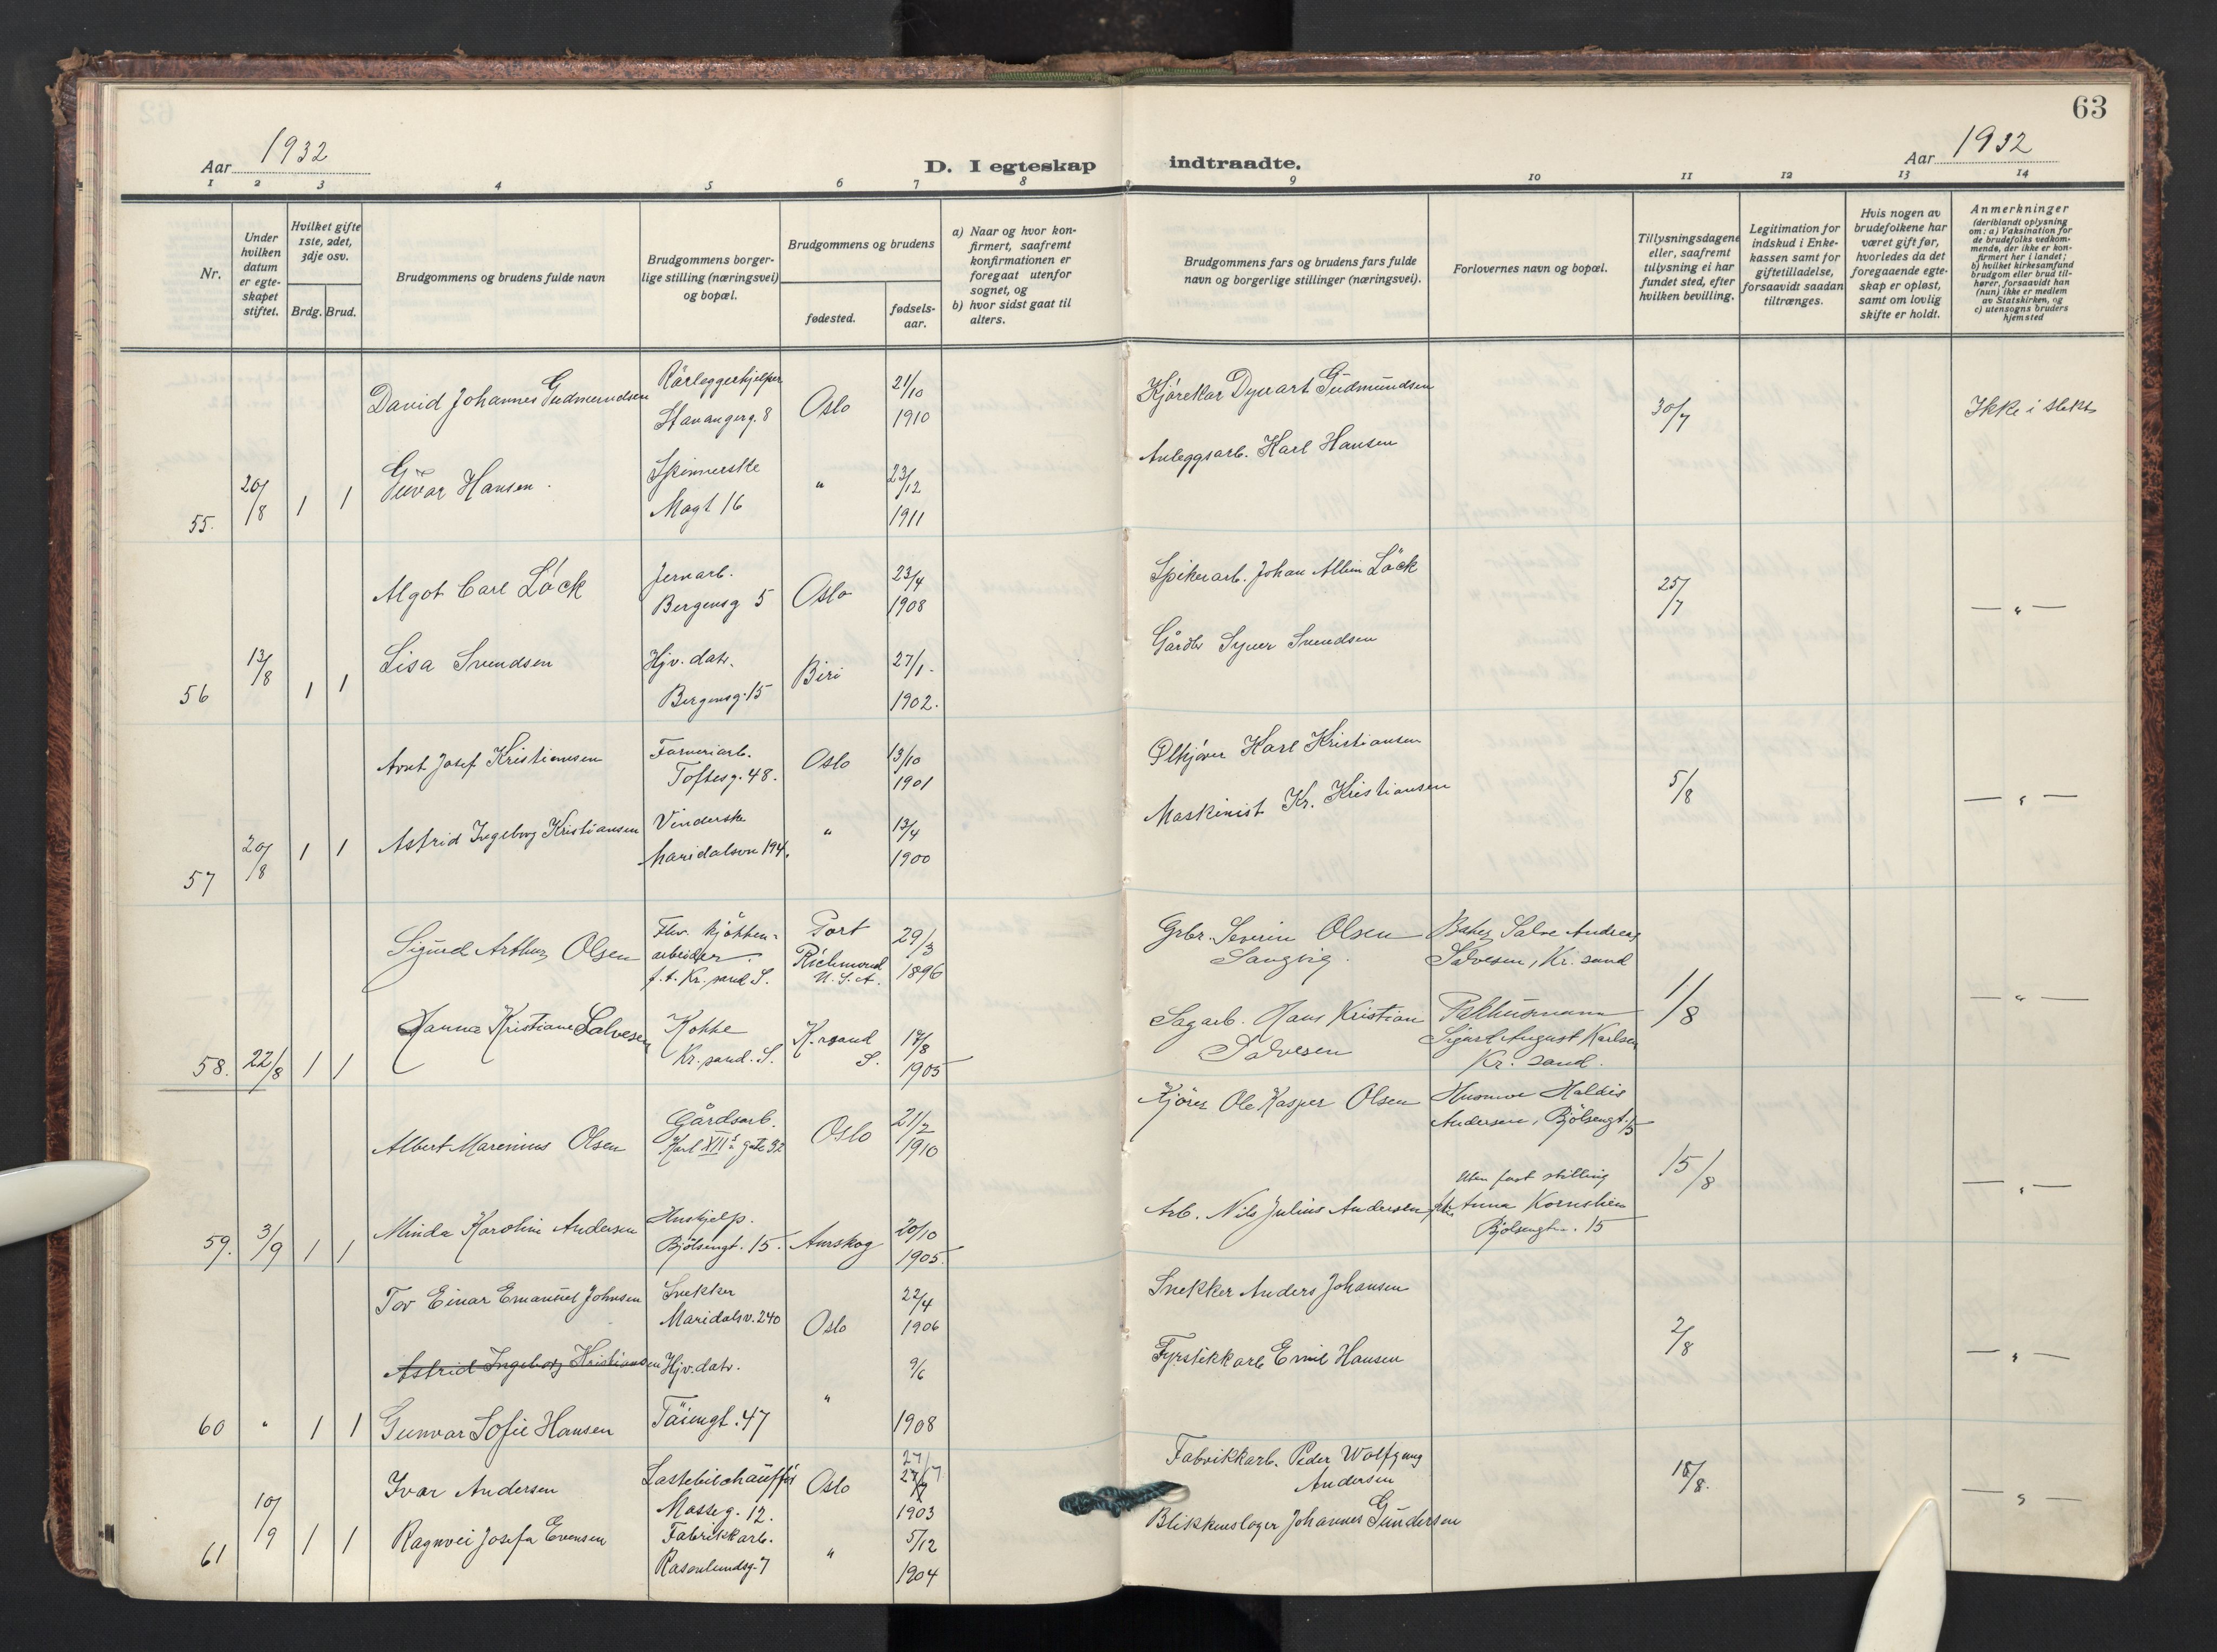 63
Aar 1932
D. I egteskap indtraadte.
Aar 1932
1 2 3 4 5 6 7 8 9 10 11 12 13 14
Nr.
Under hvilken datum er egte-skapet stiftet.
Hvilket gifte 1ste, 2det, 3dje osv.
Brdg. Brud.
Brudgommens og brudens fulde navn
Brudgommens borger-lige stilling (næringsvei) og bopæl.
Brudgommens og brudens
fødested.
fødsels-aar.
a) Naar og hvor kon-firmert, saafremt konfirmationen er foregaat utenfor sognet, og
b) hvor sidst gaat til alters.
Brudgommens fars og brudens fars fulde navn og borgerlige stillinger (næringsvei).
Forlovernes navn og bopæl.
Tillysningsdagene eller, saafremt tillysning ei har fundet sted, efter hvilken bevilling.
Legitimation for indskud i Enke-kassen samt for giftetilladelse, forsaavidt saadan tiltrænges.
Hvis nogen av brudefolkene har været gift før, hvorledes da det foregaaende egte-skap er opløst, samt om lovlig skifte er holdt.
Anmerkninger
(deriblandt oplysning om: a) Vaksination for de brudefolks vedkom-mende, der ikke er kon-firmert her i landet; b) hvilket kirkesamfund brudgom eller brud til-hører, forsaavidt han (hun) ikke er medlem av Statskirken, og c) utensogns bruders hjemsted
David Johannes Gudmundsen
Rörleggerhjelper
Stavangerg. 8
Oslo
21/10
1910
Kjørekar Dyvart Gudmundsen
30/7
Ikke i slekt
55. 20/8 1 1
Guvor Hansen.
Spinnerske
Magt 16
"
23/12
1911
Anleggsarb. Karl Hansen
Algot Carl Löck
Jernarb.
Bergensg 5
Oslo
23/4
1908
Spikerarb. Johan Albin Löck
25/7
— " —
56 13/8 1 1
Lisa Svendsen
Hjv. datr.
Bergensg. 15
Biri
27/1.
1902.
Gårdbr Syver Svendsen
Arnt Josef Kristiansen
Farveriarb.
Toftesg. 48.
Oslo
13/10
1901
Ølkjører Karl Kristiansen
5/8
— " —
57 20/8 1 1
Astrid Ingeborg Kristiansen
Vinderske
Maridalsvn 194.
"
13/4
1900
Maskinist Kr. Kristiansen
Sigurd Arthur Olsen
Flor. kjökken-
arbeider
f.t. Kr. sand S.
Port
Richmond
U.S.A.
29/3
1896
Grbr. Severin Olsen
Sangvig.
Baker Salve Andreas
Salvesen, Kr. sand
1/8
— " —
58. 22/8 1 1
Hanna Kristiane Salvesen
Kokke
Kr. sand. S.
K.rsand
S.
17/8
1905
Sagarb. Hans Kristian
Salvesen
Pakhusmann
Sigurd August Karlsen
Kr. sand.
Albert Marenius Olsen
Gårdsarb.
Karl XII s gate 32
Oslo
21/2
1910
Kjörer Ole Kasper Olsen
Husmor Haldis
Andersen, Bjölsengt. 15
15/8
— " —
59. 3/9 1 1
Minda Karoline Andersen
Hushjelp.
Bjölsengt. 15.
Aurskog
20/10
1905.
Arb. Nils Julius Andersen
Uten fast stilling
frk. Anna Kornstien
Bjölsengtn. 15
Tor Einar Emanuel Johnsen
Snekker
Maridalsv. 240
Oslo
22/4
1906
Snekker Anders Johansen
2/8
— " —
Astrid Ingeborg Kristiansen
Hjv. datr.
9/6
Fyrstikkarb Emil Hansen
60 " 1 1
Gunvor Sofie Hansen
Täiengt. 47
"
1908
Ivar Andersen
Lastebilchauffør
Mosseg. 12.
Oslo
27/7
27/7
1903
Fabrikkarb. Peder Wolfgang
Andersen
18/8.
— " —
61 10/9 1 1
Ragnvei Josefa Evensen
Fabrikkarb.
Rosenlundsg. 7
"
5/12
1904
Blikkenslager Johannes Gundersen